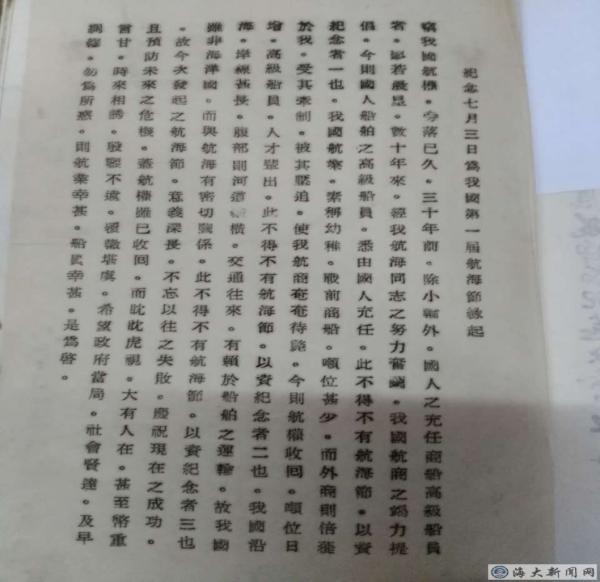 紀念七月三日為我國第一屆航海節緣起
竊我國航權。旁落已久。三十年前。除小輪外。國人之充任商船高級船員
者。寥若晨星。數十年來。經我航海同志之努力奮鬥。我國航商之竭力提
倡。今則國人船舶之高級船員。悉由國人充任。此不得不有航海節。以資
紀念者一也。我國航業。素稱幼稚。戰前商船。噸位甚少。而外商則倍蓰
於我。受其牽制。被其壓迫。使我航商奄奄待斃。今則航權收回。噸位日
增。高級船員。人才輩出。此不得不有航海節。以資紀念者二也。我國沿
海。岸線甚長。腹部則河道縱橫。交通往來。有賴於船舶之運輸。故我國
雖非海洋國。而與航海有密切關係。此不得不有航海節。以資紀念者三也
。故今次發起之航海節。意義深長。不忘以往之失敗。慶祝現在之成功。
且預防未來之危機。蓋航權雖已收回。而眈眈虎視。大有人在。甚至幣重
言甘。時來相誘。殷憂不遑。希望政府當局。社會賢達。及早
綢繆。勿為所惑。則航業幸甚。船員幸甚。是為啓。
海大新闻网